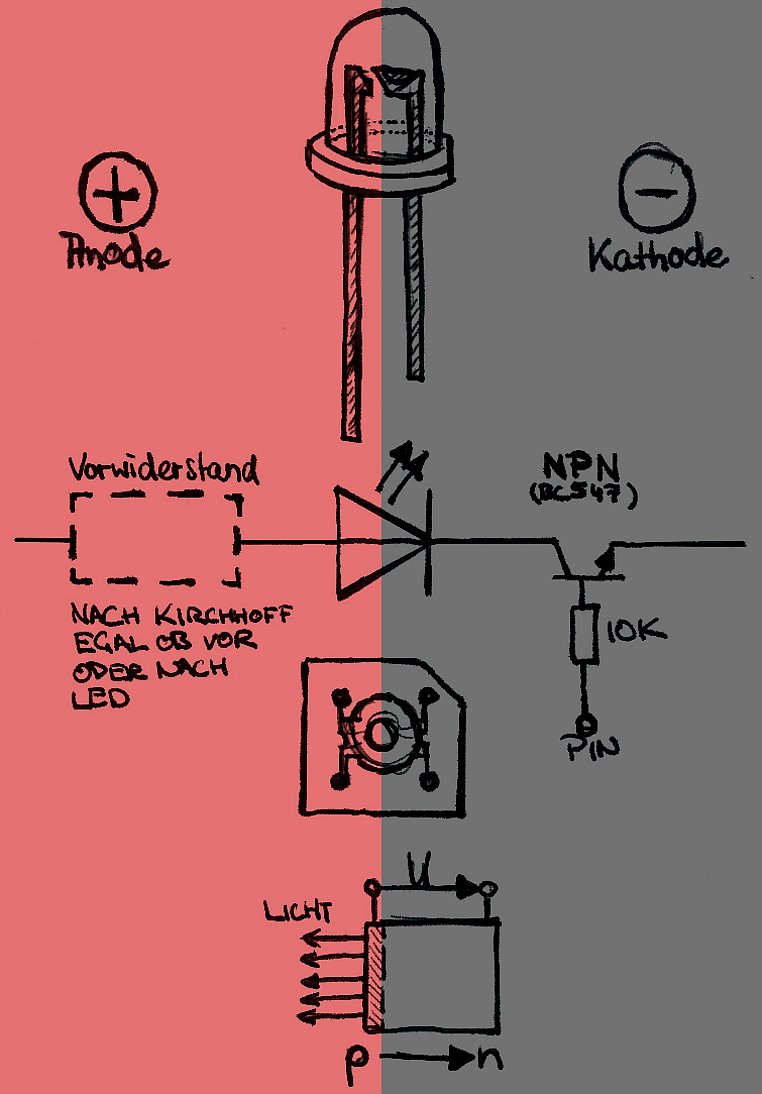 +
Anode
−
Kathode
Vorwiderstand
NPN
(BC547)
NACH KIRCHHOFF
EGAL OB VOR
ODER NACH
LED
10K
PIN
U
LICHT
p
n